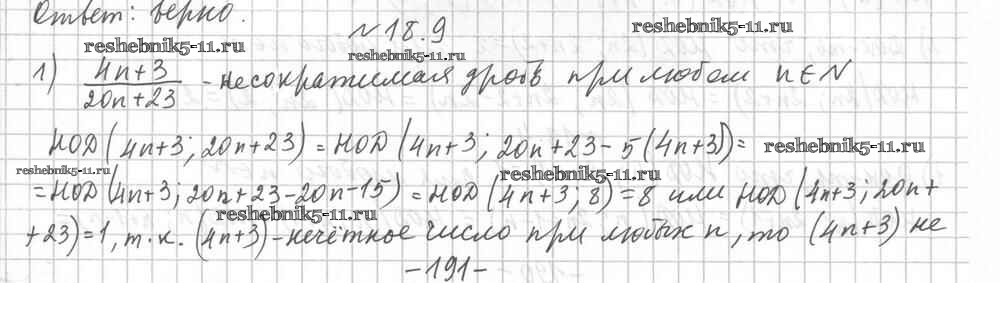 Ответ: верно.
№18.9
reshebnik5-11.ru
reshebnik5-11.ru
reshebnik5-11.ru
1) 4n+3/20n+23 - несократимая дробь при любом n∈N
НОД(4n+3; 20n+23) = НОД(4n+3; 20n+23-5(4n+3))=
reshebnik5-11.ru
reshebnik5-11.ru
reshebnik5-11.ru
=НОД(4n+3; 20n+23-20n-15) = НОД(4n+3; 8) = 8 или НОД(4n+3; 20n+
reshebnik5-11.ru
+23)=1, т.к. (4n+3)-нечётное число при любых n, то (4n+3) не
-191-